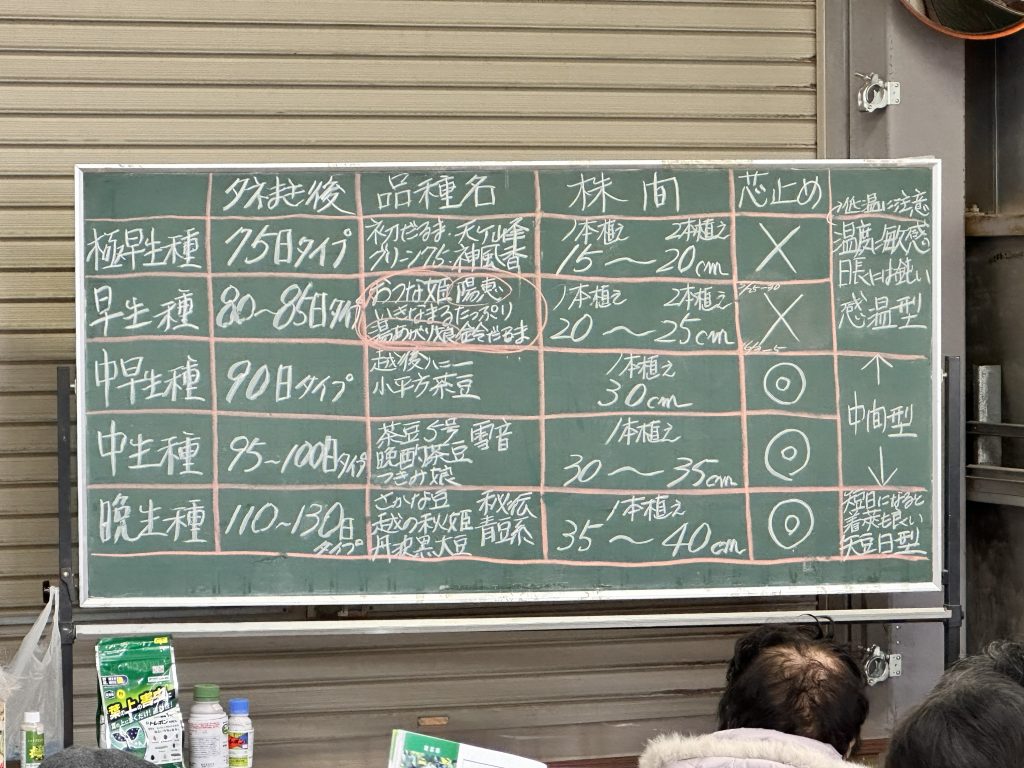 タネまき後 品種名 株間 芯止め
極早生種 75日タイプ
初だるま・天ケ峰
グリーン75・神風香
1本植え 2本植え
15〜20cm
×
低温に注意
温度に敏感
日長には鈍い
感温型
早生種 80〜85日タイプ
おつな姫 陽恵
いきなまるたっぷり
湯あがり娘
だるま
1本植え 2本植え
20〜25cm
×
中早生種 90日タイプ
越後ハニー
小平方茶豆
1本植え
30cm
◎
↑
中間型
↓
中生種 95〜100日タイプ
茶豆5号 雪音
晩酌茶豆
つきみ娘
1本植え
30〜35cm
◎
晩生種 110〜130日タイプ
さかな豆
越の秋姫 青豆系
丹波黒大豆
1本植え
35〜40cm
◎
短日になると
着莢も良い
短日型
葉の上の害虫に
トレボン